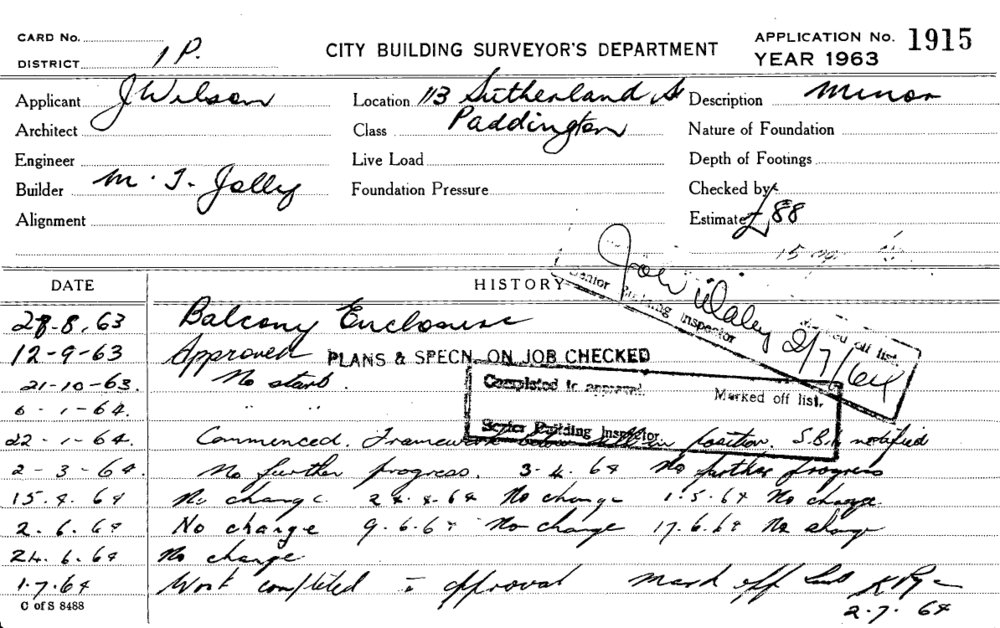 CARD No.
DISTRICT 1 P.
CITY BUILDING SURVEYOR'S DEPARTMENT
APPLICATION No. 1915
YEAR 1963
Applicant J Wilson
Location 113 Sutherland St
Description Minor
Architect
Class Paddington
Nature of Foundation
Engineer
Live Load
Depth of Footings
Builder M. J. Jolly
Foundation Pressure
Checked by
Alignment
Estimate £88
DATE
HISTORY
Senior Building Inspector
Marked off list.
2/7/64
28-8.63 Balcony Enclosure
12-9-63 Approved PLANS & SPECN. ON JOB CHECKED
21-10-63. No start.
Completed to approval.
Marked off list.
6-1-64. " "
Senior Building Inspector
22-1-64. Commenced. Framework below in position. S.B.I. notified
2-3-64. No further progress. 3-4.64 No further progress
15.4.64 No change. 24.4.64 No change 1.5.64 No change
2.6.64 No change 9.6.64 No change 17.6.64 No change
24.6.64 No change
1.7.64 Work completed to approval mark off
C of S 8488
2.7.64